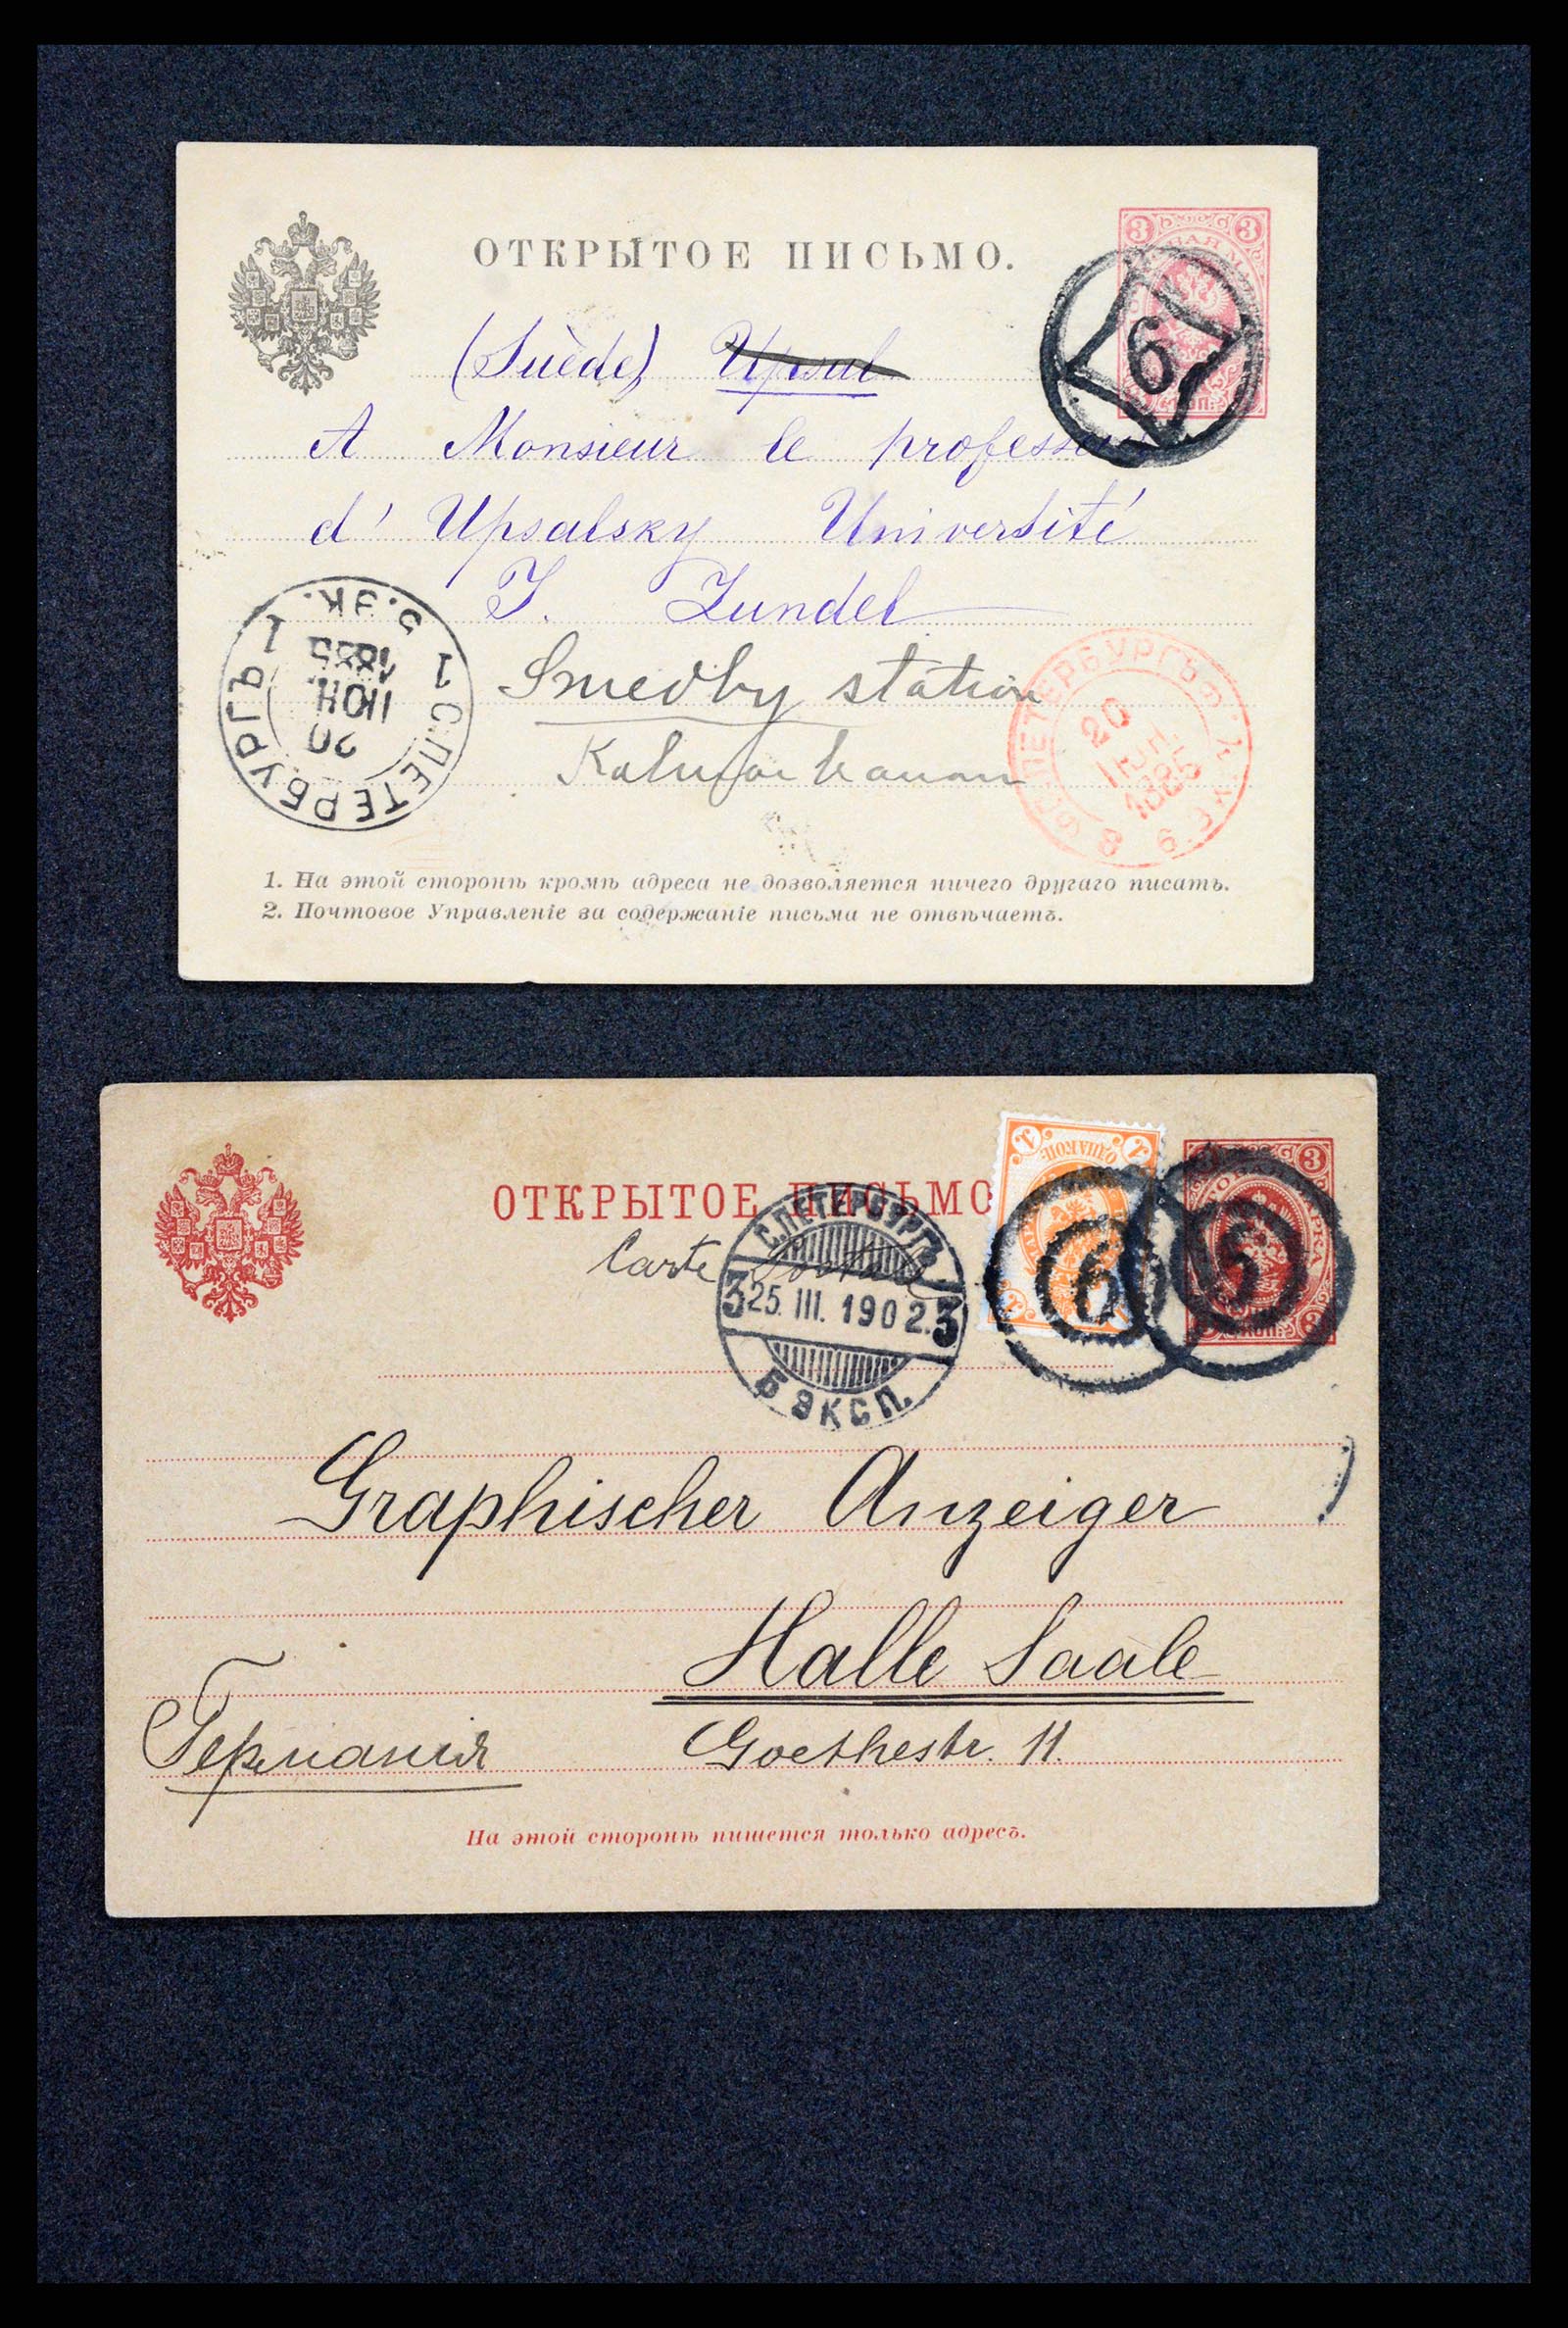 ОТКРЫТОЕ ПИСЬМО.
3 3
6
(Suède) Upsal
A Monsieur le professeur
d' Upsalsky Université
J. Lundel
Smedby station
С.ПЕТЕРБУРГЪ 1
5.ЭК. 1
20
ІЮН.
1885
20
ІЮН.
1885
1. На этой сторонѣ кромѣ адреса не дозволяется ничего другаго писать.
2. Почтовое Управленіе за содержаніе письма не отвѣчаетъ.
ОТКРЫТОЕ ПИСЬМО
Carte Postale
С.ПЕТЕРБУРГЪ
3 25. III. 1902. 3
Б ЭКСП.
1 1
ОДНА КОП.
3 3
МАРКА
3 КОП. 3
6 5
Graphischer Anzeiger
Halle Saale
Германія
Goethestr. 11.
На этой сторонѣ пишется только адресъ.